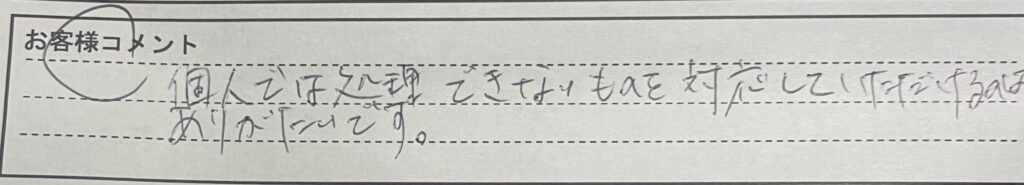 お客様コメント
個人では処理できないものを対応していただけるのは
ありがたいです。